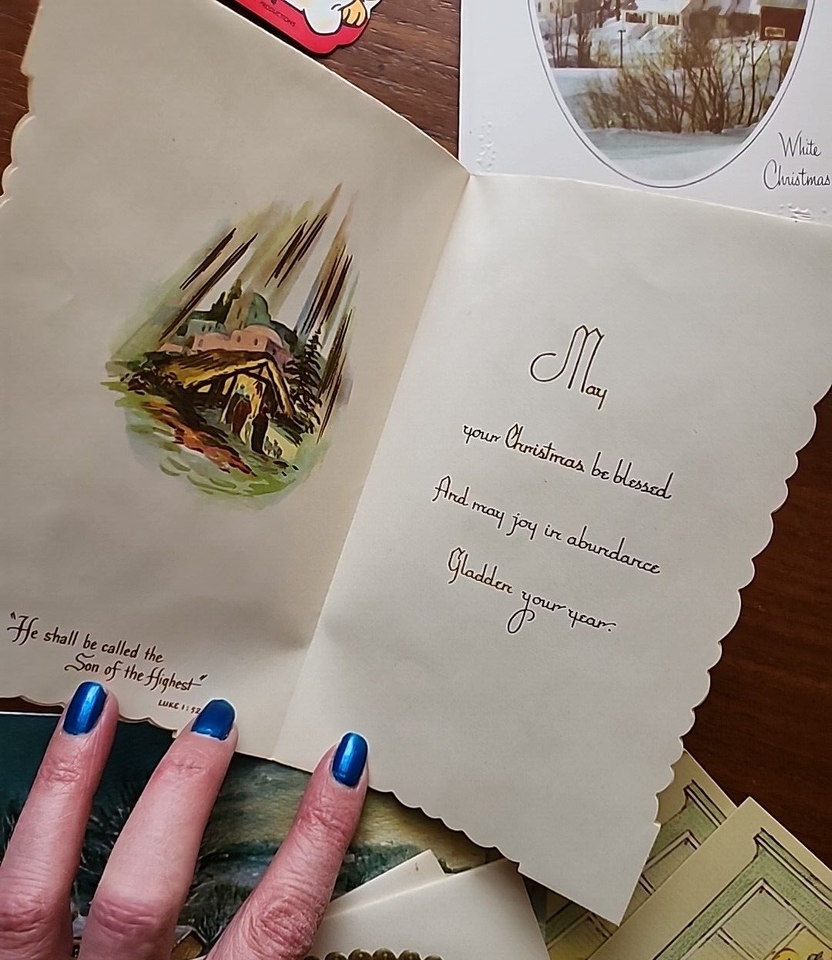 PRODUCTIONS
White
Christmas
May
your Christmas be blessed
And may joy in abundance
Gladden your year.
"He shall be called the
Son of the Highest"
LUKE 1:32